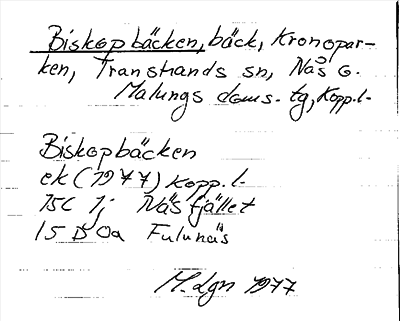 Biskopbäcken, bäck, Kronopar-
ken, Transtrands sn, Näs o.
Malungs doms. tg, Kopp.l.
Biskopbäcken
ek (1977) Kopp.l.
15C 1j Näsfjället
15D 0a Fulunäs
M.Lgn 1977